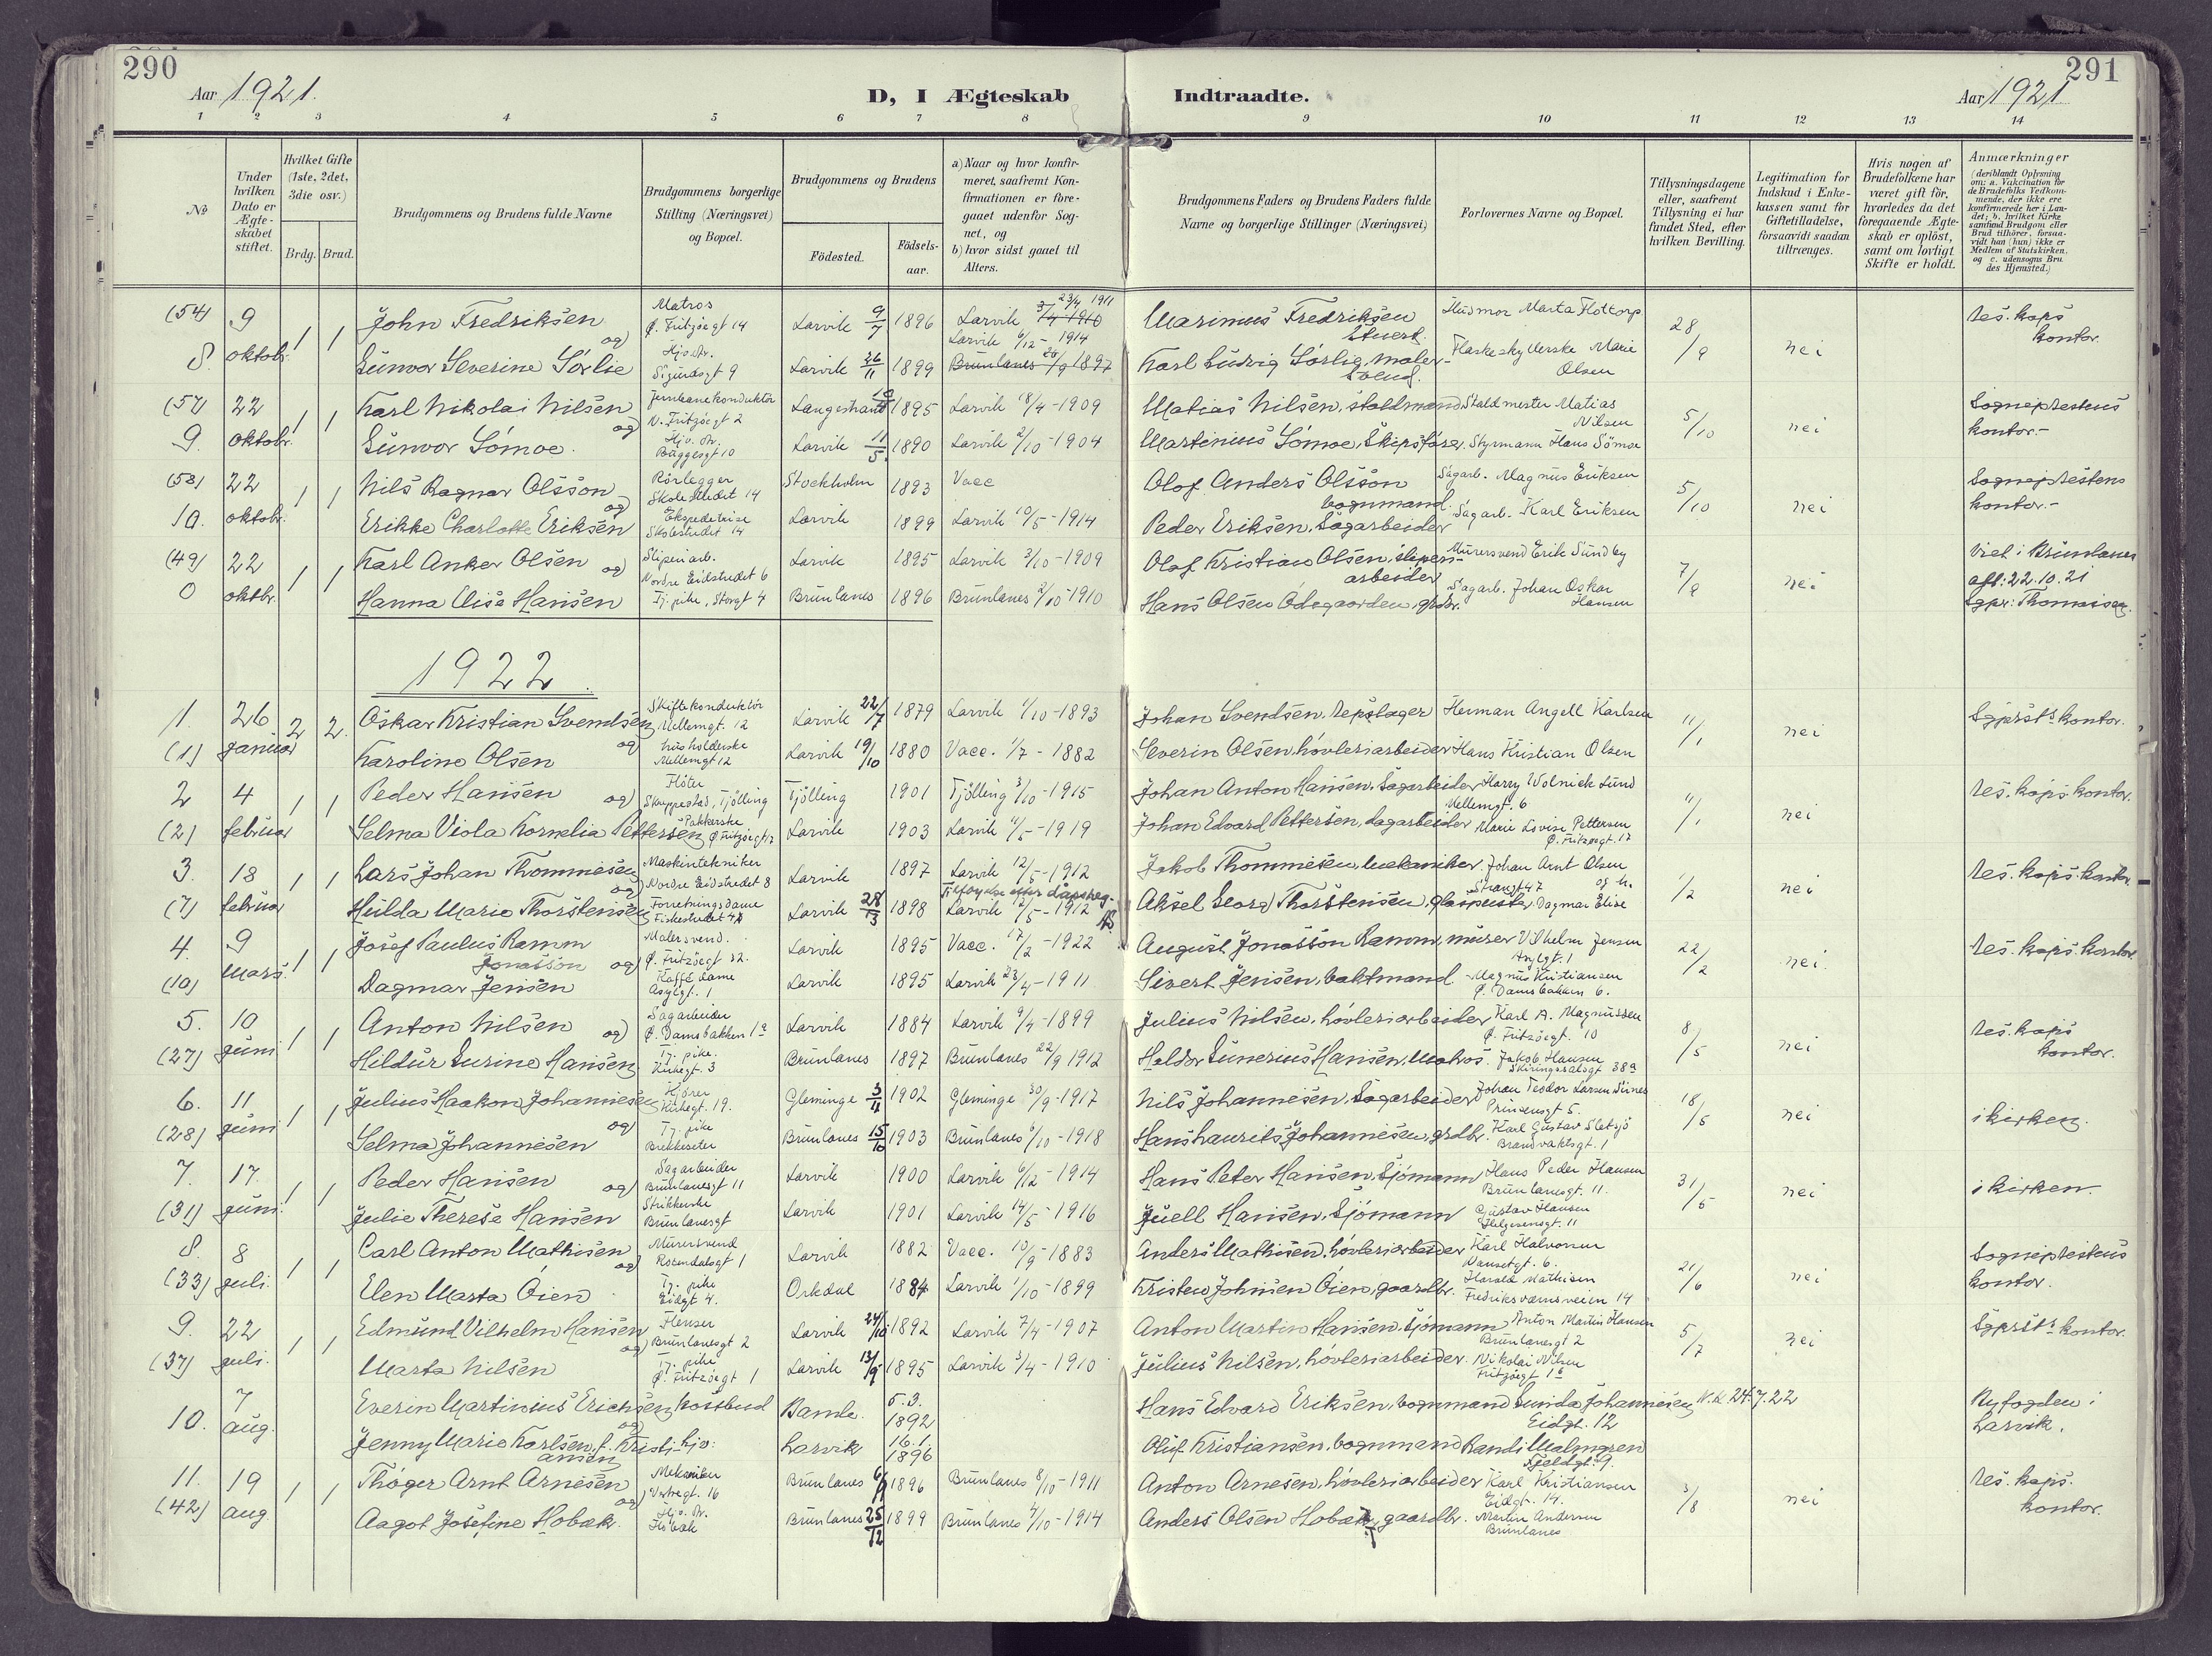 290
291
Aar 1921.
D, I Ægteskab Indtraadte.
Aar 1921
1 2 3 4 5 6 7 8 9 10 11 12 13 14
No
Under hvilken Dato er Ægte-skabet stiftet.
Hvilket Gifte (1ste, 2det, 3die osv.)
Brdg. Brud.
Brudgommens og Brudens fulde Navne
Brudgommens borgerlige Stilling (Næringsvei) og Bopæl.
Brudgommens og Brudens
Födested.
Födsels-aar.
a) Naar og hvor konfir-
meret, saafremt Kon-
firmationen er fore-
gaaet udenfor Sog-
net, og
b) hvor sidst gaaet til
Alters.
Brudgommens Faders og Brudens Faders fulde
Navne og borgerlige Stillinger (Næringsvei)
Forlovernes Navne og Bopæl.
Tillysningsdagene
eller, saafremt
Tillysning ei har
fundet Sted, efter
hvilken Bevilling.
Legitimation for
Indskud i Enke-
kassen samt for
Giftetilladelse,
forsaavidt saadan
tiltrænges.
Hvis nogen af
Brudefolkene har
været gift før,
hvorledes da det
foregaaende Ægte-
skab er oplöst,
samt om lovligt
Skifte er holdt.
Anmærkninger
(deriblandt Oplysning
om: a. Vakcination for
de Brudefolks Vedkom-
mende, der ikke ere
konfirmerede her i Lan-
det; b. hvilket Kirke
samfund Brudgom eller
Brud tilhörer, forsaa-
vidt han (hun) ikke er
Medlem af Statskirken,
og c. udensogns Bru
des Hjemsted.)
(54) 9 1 1 John Fredriksen og Matros Ö. Fritzöegt 14 Larvik 9/7 1896 Larvik 3/4 1910 23/4 1911 Marinius Fredriksen Stuert. Husmor Marta Flottorp 28/9 nei res. kaps kontor.
8. oktobr. Gunvor Severine Sörlie Hjv. dtr. Sigurdsgt 9 Larvik 26/11 1899 Larvik 6/12 - 1914 Brunlanes 26/9 1897 Karl Ludvig Sörlie, maler-svend. Flaskeskyllerske Marie Olsen
(57) 22 1 1 Karl Nikolai Nilsen og Jernbanekonduktör V. Fritzöegt 2 Langestrand 1895 Larvik 18/4 - 1909 Matias Nilsen, staldmand Staldmester Matias Nilsen 5/10 nei Sogneprestens kontor.-
9. oktobr. Gunvor Sömoe. Hjv. dtr. Bøggesgt 10 Larvik 11/5 1890 Larvik 2/10 - 1904 Martinius Sömoe, Skipsförer. Styrmann Hans Sömoe
(58) 22 1 1 Nils Ragnar Olsson og Rörlegger Skolestredet 14 Stockholm 1893 Vacc Olof Anders Olsson vognmand. Sagarb. Magnus Eriksen 5/10 nei Sogneprestens kontor.-
10. oktobr. Erikke Charlotte Eriksen Ekspeditrise Skolestredet 14 Larvik 1899 Larvik 10/5 - 1914 Peder Eriksen, Sagarbeider Sagarb. Karl Eriksen
(49) 22 1 1 Karl Anker Olsen og Sliperiarb. Nordre Eidstredet 6 Larvik 1895 Larvik 3/10 - 1909 Olaf Kristian Olsen, sliperi-arbeider Murersvend Erik Sundby 7/9 nei Viet i Brunlanes
0 oktbr. Hanna Elise Hansen Tj. pike, Storgt 4 Brunlanes 1896 Brunlanes 2/10 - 1910 Hans Olsen Ödegaarden, grdbr. Sagarb. Johan Oskar Hansen aft: 22.10.21
1922
1. 26 2 2. Oskar Kristian Svendsen og Skiftekonduktör Mellemgt. 12 Larvik 22/7 1879 Larvik 1/10 - 1893 Johan Svendsen, repslager Herman Angell Karlsen 11/1 nei Sgprsts kontor.
(1) januar Karoline Olsen husholderske Mellemgt 12 Larvik 19/10 1880 Vacc. 1/7 - 1882 Severin Olsen, hövleriarbeider Hans Kristian Olsen
2 4 1 1 Peder Hansen og Flöter Skuppestad, Tjölling Tjölling 1901 Tjölling 3/10 - 1915 Johan Anton Hansen, Sagarbeider Harry Volnick Lund Mellemgt. 6 11/1 nei res. kaps. kontor.
(2) februar Selma Viola Kornelia Pettersen Pakkerske Ö Fritzöegt 17 Larvik 1903 Larvik 11/5 - 1919 Johan Edvard Pettersen, dagarbeider Marie Lovise Pettersen Ö. Fritzöegt. 17
3. 18 1 1 Lars Johan Thommesen og Maskintekniker Nordre Eidstredet 8 Larvik 1897 Larvik 12/5 - 1912 Jakob Thommesen, mekaniker. Johan Arnt Olsen 1/2 nei res. kaps. kontor
(7) februar Hulda Marie Thorstensen Forretningsdame Fiskestredet Larvik 28/3 1898 Larvik 12/5 - 1912 Aksel Georg Thorstensen, glaspuster Dagmar Elise
4. 9 1 1 Josef Paulus Ramm Jonasson og Malersvend. Ö. Fritzöegt 32. Larvik 1895 Vacc. 17/2 - 1922 August Jonasson Ramm, murer Vilhelm Jensen Asylgt. 1 22/2 nei res. kaps. kontor
(10) Mars. Dagmar Jensen Kaffedame Asylgt. 1 Larvik 1895 Larvik 23/4 - 1911 Sivert Jensen, vaktmand. Magnus Kristiansen Ö. Damsbakken 6.
5. 10 1 1 Anton Nilsen og Sagarbeider Ö. Damsbakken 1a Larvik 1884 Larvik 9/4 - 1899 Julius Nilsen, hövleriarbeider Karl A. Magnussen Ö. Fritzöegt. 10 8/5 nei res. kaps kontor.
(27) juni Hildur Gurine Hansen Tj. pike. Kirkegt. 3 Brunlanes 1897 Brunlanes 22/9 1912 Haldor Gunerius Hansen, Matros. Jakob Hansen Skiringssalsgt 38a
6. 11 1 1 Julius Haakon Johannesen og Kjörer Kirkegt. 19. Gleminge 3/11 1902 Gleminge 30/9 - 1917 Nils Johannesen, Sagarbeider Johan Teodor Larsen Prinsensgt 5. 18/5 nei i kirken.
(28) juni Selma Johannesen Tj. pike Brekkeseter Brunlanes 15/10 1903 Brunlanes 6/10 - 1918 Hans Laurits Johannesen, grdbr. Karl Gustav Sletsjö Brandvaktsgt. 1
7. 17. 1 1 Peder Hansen og Sagarbeider Brunlanesgt 11 Larvik 1900 Larvik 6/12 - 1914 Hans Peter Hansen, Sjömann Hans Peder Hansen Brunlanesgt. 11. 31/5 nei i kirken.
(31) juni. Julie Therese Hansen Strikkerske Brunlanesgt Larvik 1901 Larvik 14/5 - 1916 Juell Hansen, Sjömann Gustav Hansen Helgesensgt. 11
8. 8 1 1 Carl Anton Mathisen og Murersvend Rosendalsgt 1 Larvik 1882 Vacc. 10/9 - 1883 Anders Mathisen, hövleriarbeider Karl Halvorsen Nansetgt. 6. 21/6 nei Sogneprestens kontor.
(33) juli. Elen Marta Öien Tj. pike Eidgt 4. Orkdal 1884 Larvik 1/10 - 1899 Kristen Johnsen Öien, gaardbr. Harald Mathisen Fredriksværnsveien 14
9. 22 1 1 Edmund Vilhelm Hansen og Flenser Brunlanesgt 2 Larvik 24/10 1892 Larvik 7/4 - 1907 Anton Martin Hansen, Sjömann Anton Martin Hansen Brunlanesgt 2 5/7 nei Sgprsts kontor.
(37) juli. Marta Nilsen Tj. pike Ö. Fritzöegt 1 Larvik 13/9 1895 Larvik 3/4 - 1910 Julius Nilsen, hövleriarbeider. Nikolai Nilsen Fritzöegt 1b
10. 7 aug. Everin Martinius Erichsen, postbud og Bamle. 5.3. 1892 Hans Edvard Eriksen, vognmand Gunda Johannesen Eidgt. 12 24.7.22 Byfogden i Larvik.
Jenny Marie Karlsen, f. Kristiansen hjv: Larvik 16.1. 1896 Oluf Kristiansen, vognmand Randi Malmgren Kjeldgt. 9.
11. 19 1 1 Thöger Arnt Arnesen og Mekaniker Verkegt. 16 Brunlanes 1896 Brunlanes 8/10 - 1911 Anton Arnesen, hövleriarbeider Karl Kristiansen Eidgt. 14. 3/8 nei res. kaps. kontor.
(42) aug. Aagot Josefine Hobæk. Hjv. dtr. Hobæk Brunlanes 25/12 1899 Brunlanes 4/10 - 1914 Anders Olsen Hobæk, gaardbr. Martin Andersen Brunlanes